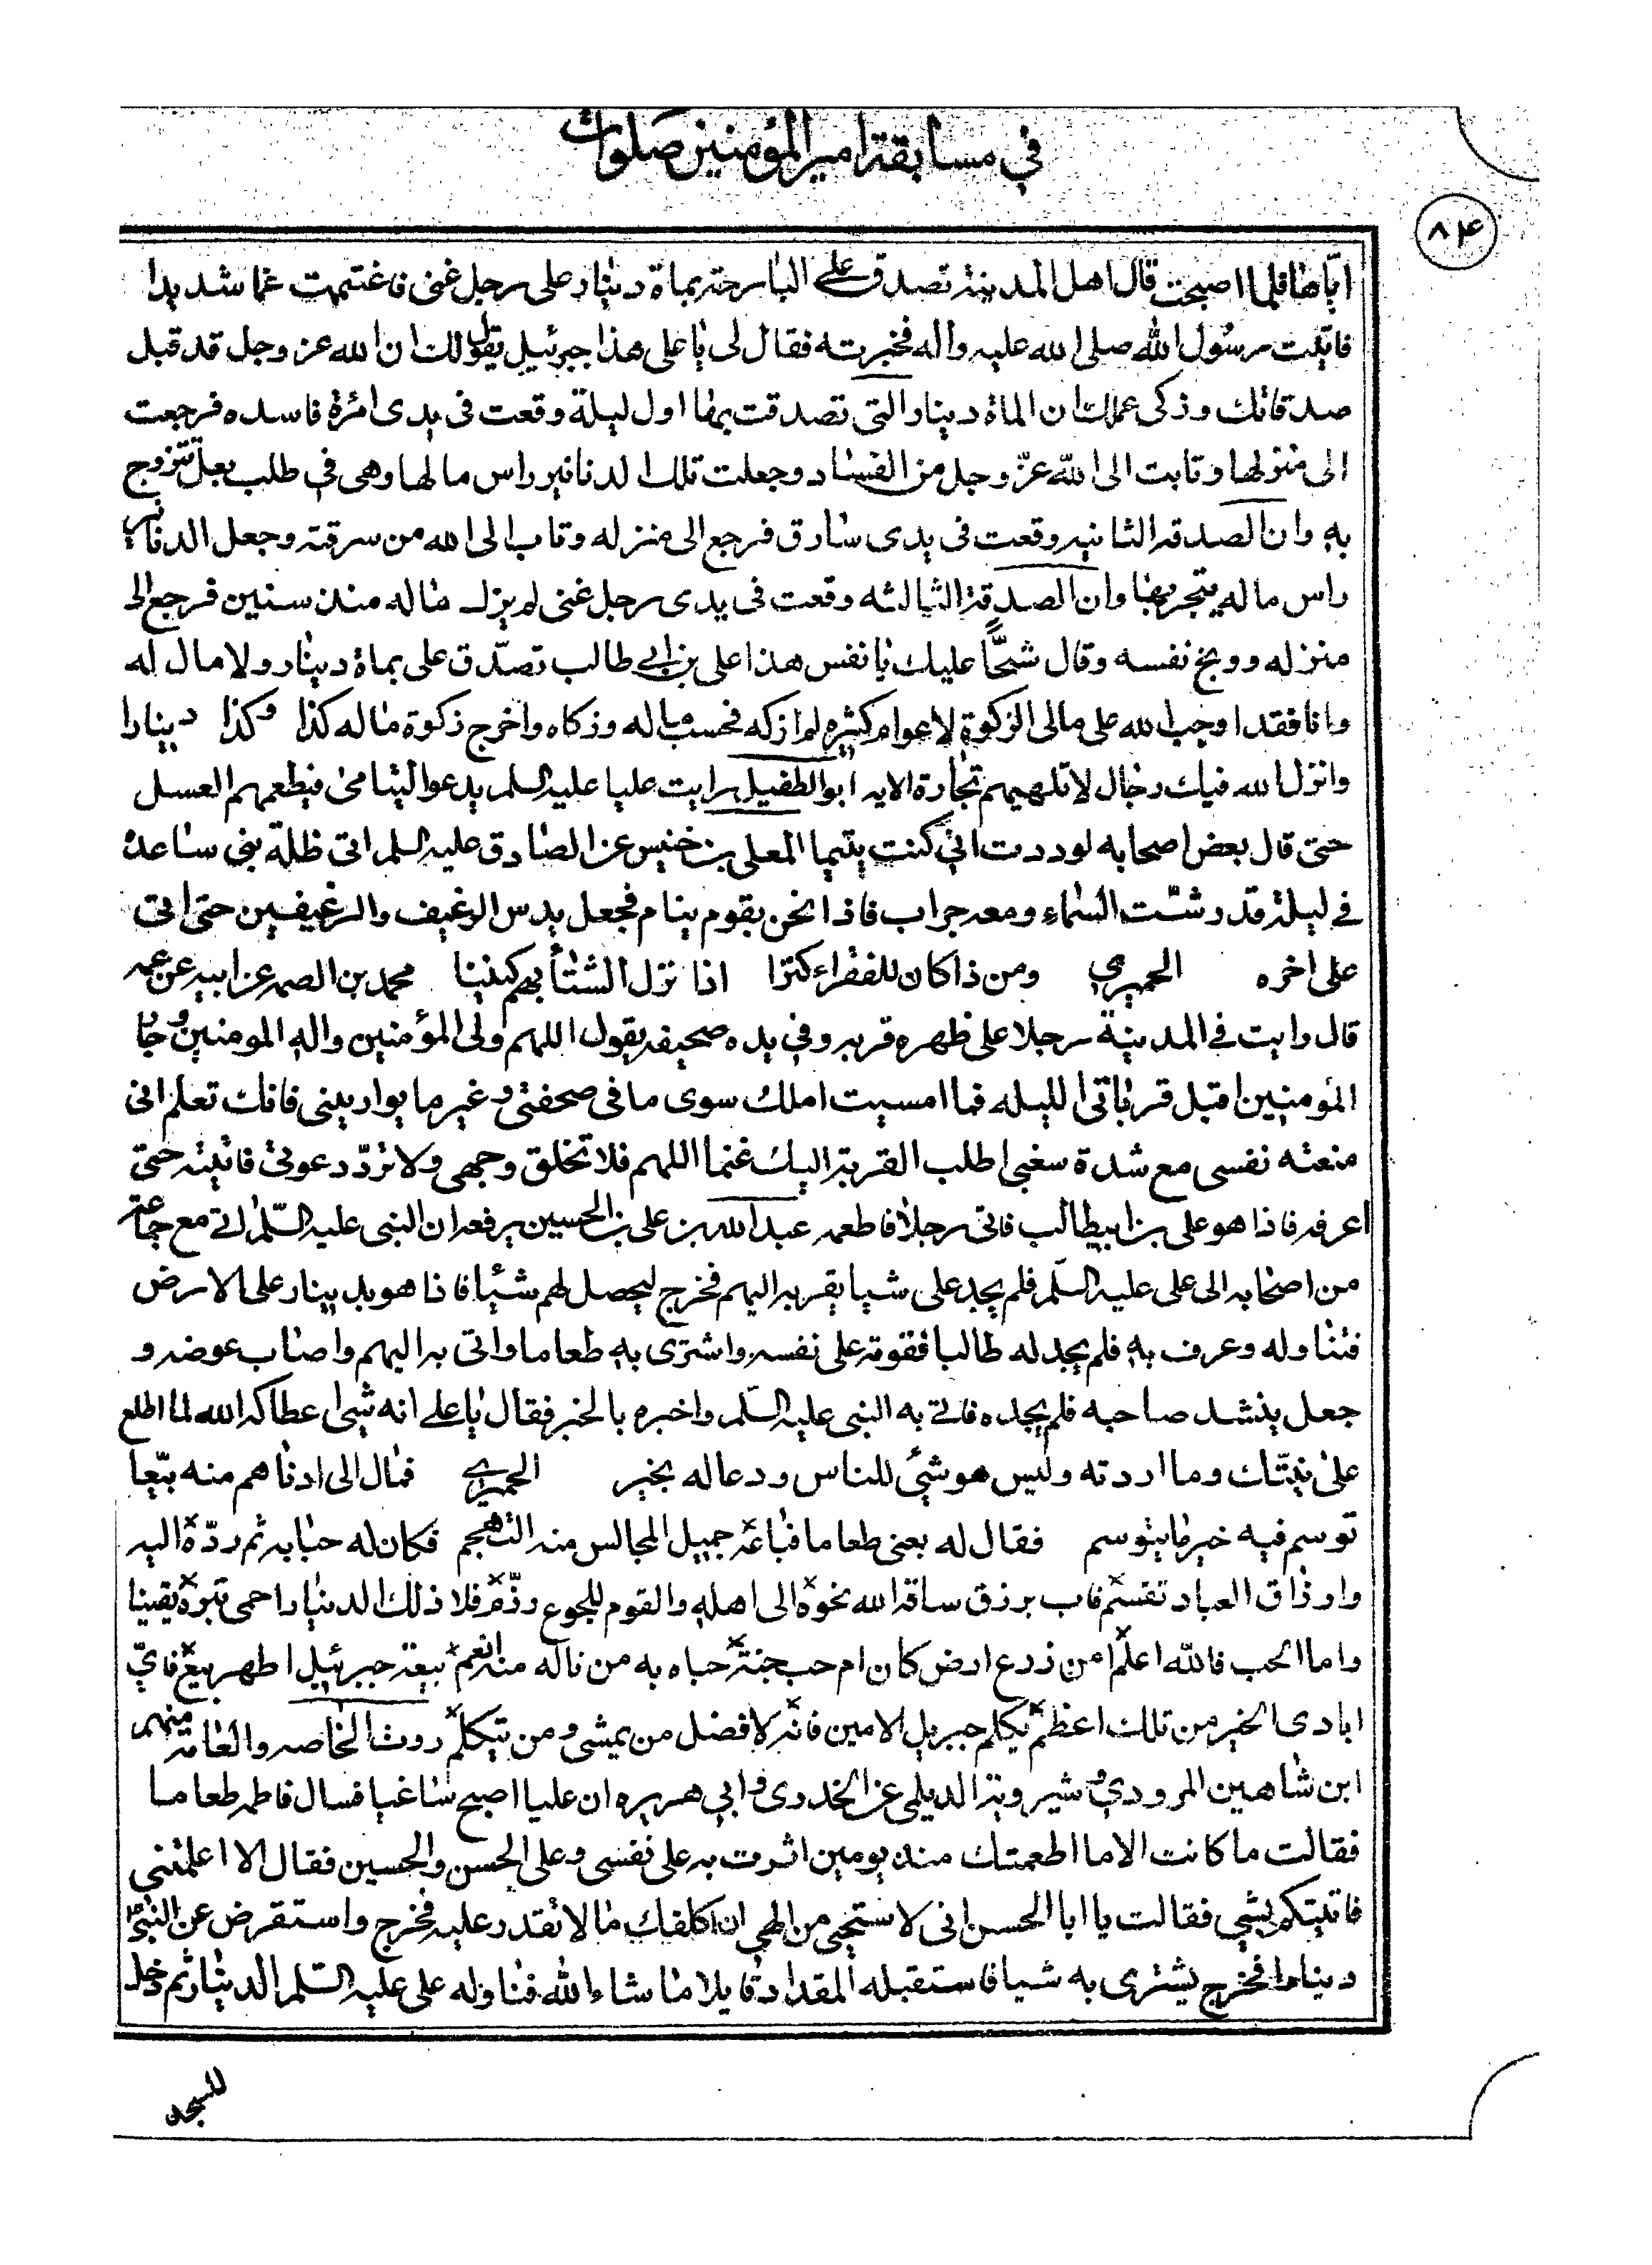 في مسابقة امير المؤمنين صلوات
۸۴
اياها فلما اصبحت قال اهل المدينة تصدق علي البارحة بماة دينار على رجل غنى فاغتممت غما شديدا
فاتيت رسول الله صلى الله عليه واله فخبرته فقال لى يا على هذا جبرئيل يقول لك ان الله عز وجل قد قبل
صدقاتك وزكى عملك ان الماة دينار التى تصدقت بها اول ليلة وقعت فى يدى امرأة فاسده فرجعت
الى منزلها وتابت الى الله عزّ وجل من الفساد وجعلت تلك الدنانير راس مالها وهى في طلب بعل تتزوج
به وان الصدقة الثانيه وقعت فى يدى سارق فرجع الى منزله وتاب الى الله من سرقته وجعل الدنانير
راس ماله يتجر بها وان الصدقة الثالثه وقعت فى يدى رجل غنى لم يزك ماله منذ سنين فرجع الى
منزله ووبخ نفسه وقال شحًّا عليك يا نفس هذا على بن ابي طالب تصدّق على بماة دينار ولا مال له
وانا فقد اوجب الله على مالى الزكوة لاعوام كثيره لم ازكه فحسب ماله وزكاه واخرج زكوة ماله كذا وكذا دينارا
وانزل الله فيك رجال لا تلهيهم تجارة الايه ابو الطفيل رايت عليا عليه السلم يدعو اليتامى فيطعمهم العسل
حتى قال بعض اصحابه لوددت اني كنت يتيما المعلى بن خنيس عن الصادق عليه السلم اتى ظلة بني ساعدة
في ليلة قد رشّت السماء ومعه جراب فاذا نحن بقوم ينام فجعل يدس الرغيف والرغيفين حتى اتى
على اخره الحميري ومن ذا كان للفقراء كنزا اذا نزل الشتأ بهم كنينا محمد بن الصمه عن ابيه عن عمه
قال رايت في المدينة رجلا على ظهره قربه وفي يده صحيفه يقول اللهم ولى المؤمنين واله المومنين وجار
المؤمنين اقبل قرباتى الليله فما امسيت املك سوى ما فى صحفتى وغير ما يوارينى فانك تعلم انى
منعته نفسى مع شدة سغبى اطلب القربة اليك غنما اللهم فلا تخلق وجهى ولا تردّ دعوتى فاتيته حتى
اعرفه فاذا هو على بن ابيطالب فاتى رجلا فاطعمه عبد الله بن على بن الحسين يرفعه ان النبى عليه السّلم اتى مع جماعة
من اصحابه الى على عليه السّلم فلم يجد على شيا يقربه اليهم فخرج ليحصل لهم شيئا فاذا هو بدينار على الارض
فتناوله وعرف به فلم يجد له طالبا فقومه على نفسه واشترى به طعاما واتى به اليهم واصاب عوضه و
جعل ينشد صاحبه فلم يجده فاتى به النبى عليه السّلم واخبره بالخبر فقال يا علي انه شئ اعطاكه الله لما اطلع
على نيتّك وما اردته وليس هو شئ للناس ودعا له بخير الحميري فمال الى ادناهم منه بيّعا
توسم فيه خير ما يتوسم فقال له بعنى طعاما فباعه جميل المجالس منه التهجم فكان له حبا به ثم ردّه اليه
وارزاق العباد تقسّم فاب برزق ساقه الله نحوه الى اهله والقوم للجوع رزّم فلا ذلك الدينار احمى تبره يقينا
واما الحب فالله اعلم امن زرع ارض كان ام حب جنة حباه به من ناله منه انعم بيعة جبرئيل اطهر بيع فايّ
ايادى الخير من تلك اعظم يكلم جبريل الامين فانه لافضل من يمشى ومن يتكلم روت الخاصه والعامة منهم
ابن شاهين المرودي وشيرويه الديلمى عن الخدرى وابي هريره ان عليا اصبح ساغبا فسال فاطمه طعاما
فقالت ما كانت الا ما اطعمتك منذ يومين اثرت به على نفسى وعلى الحسن والحسين فقال الا اعلمتنى
فاتيتكم بشي فقالت يا ابا الحسن انى لاستحى من الهي ان اكلفك ما لا تقدر عليه فخرج واستقرض عن النبي
دينارا فخرج يشترى به شيا فاستقبله المقداد قايلا ما شاء الله فناوله على عليه السّلم الدينار ثم دخل
المسجد